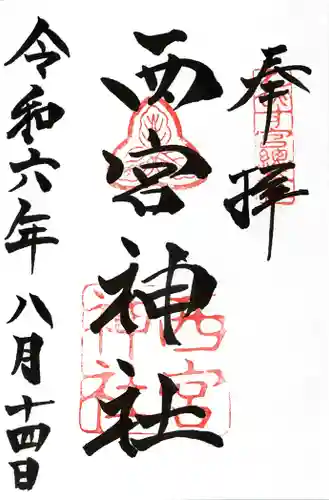 奉拝
西宮神社
西宮神社
令和六年八月十四日